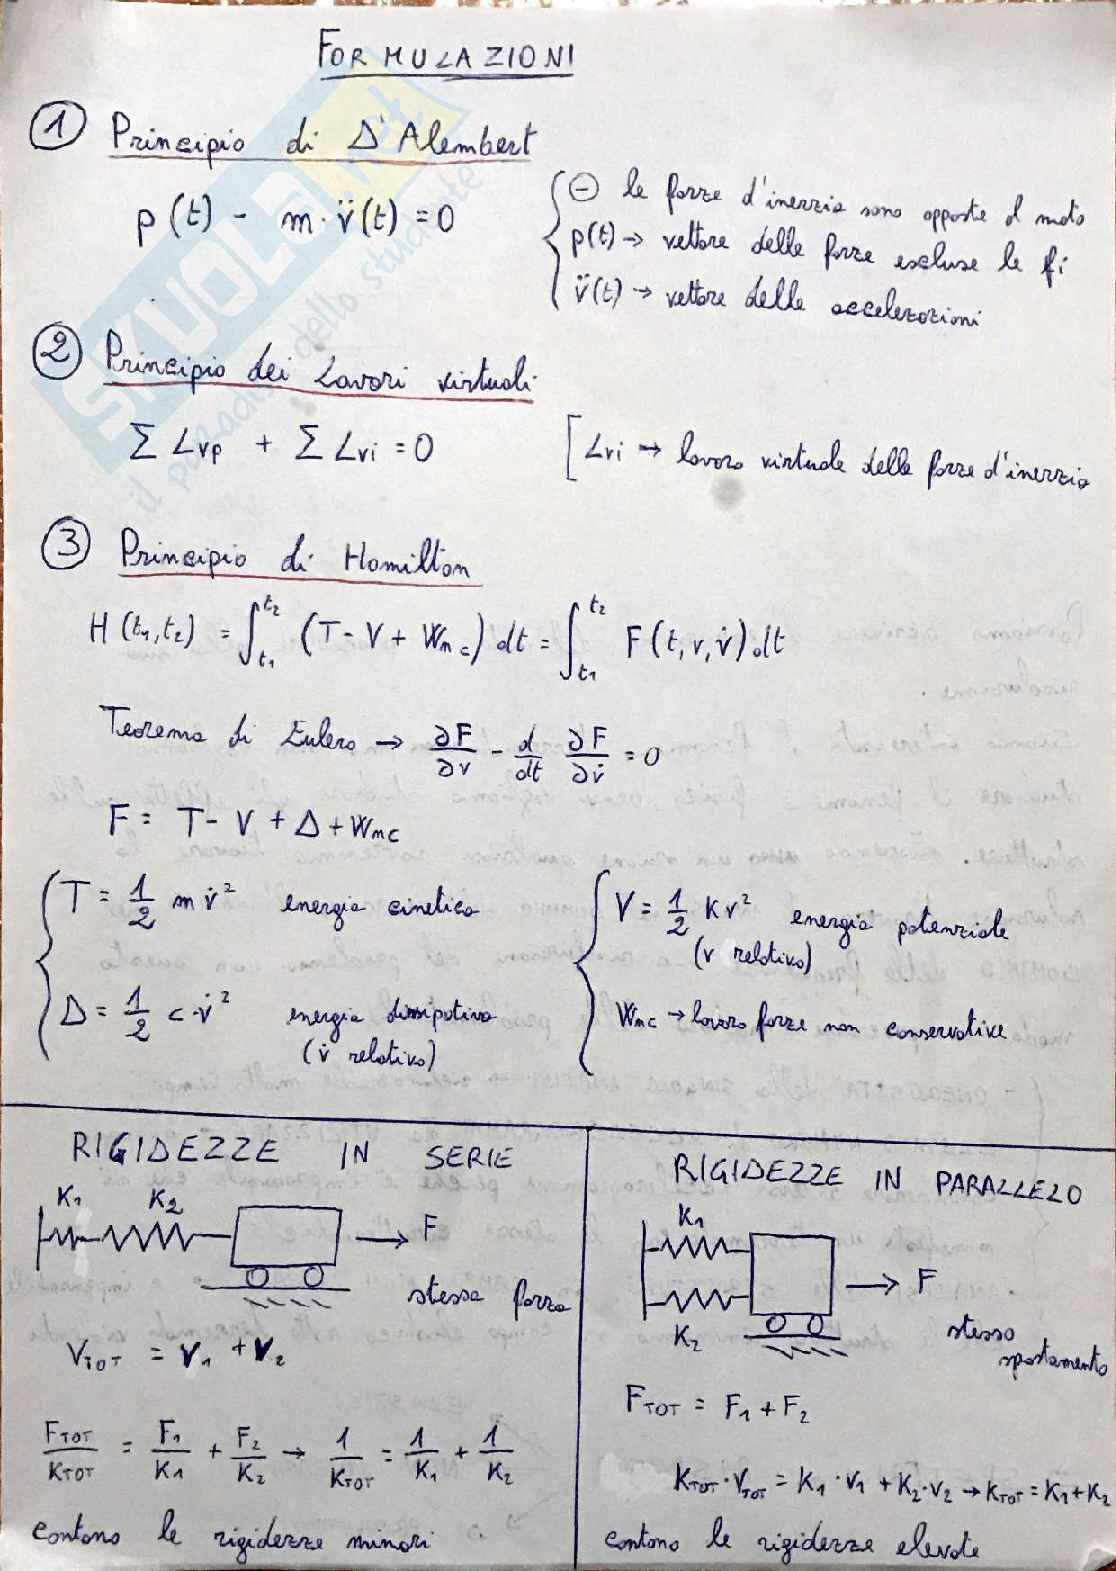 FORMULAZIONI
① Principio di D'Alembert
p(t) - m·v̈(t) = 0
⊖ le forze d'inerzia sono opposte al moto
p(t) → vettore delle forze escluse le fi
v̈(t) → vettore delle accelerazioni
② Principio dei Lavori virtuali
∑ Lvp + ∑ Lvi = 0
[Lvi → lavoro virtuale delle forze d'inerzia
③ Principio di Hamilton
H(t₁,t₂) = ∫_{t₁}^{t₂} (T - V + Wnc) dt = ∫_{t₁}^{t₂} F(t, v, v̇) dt
Teorema di Eulero → ∂F/∂v - d/dt ∂F/∂v̇ = 0
F = T - V + Δ + Wnc
T = 1/2 m v̇² energia cinetica
Δ = 1/2 c·v̇² energia dissipativa
(v̇ relativa)
V = 1/2 K v² energia potenziale
(v relativo)
Wnc → lavoro forze non conservative
RIGIDEZZE IN SERIE
K₁ K₂
F
stessa forza
VTOT = V₁ + V₂
FTOT/KTOT = F₁/K₁ + F₂/K₂ → 1/KTOT = 1/K₁ + 1/K₂
contano le rigidezze minori
RIGIDEZZE IN PARALLELO
K₁
F
K₂
stesso
spostamento
FTOT = F₁ + F₂
KTOT·VTOT = K₁·V₁ + K₂·V₂ → KTOT = K₁ + K₂
contano le rigidezze elevate
SKUOLA.net
il paradiso dello studente